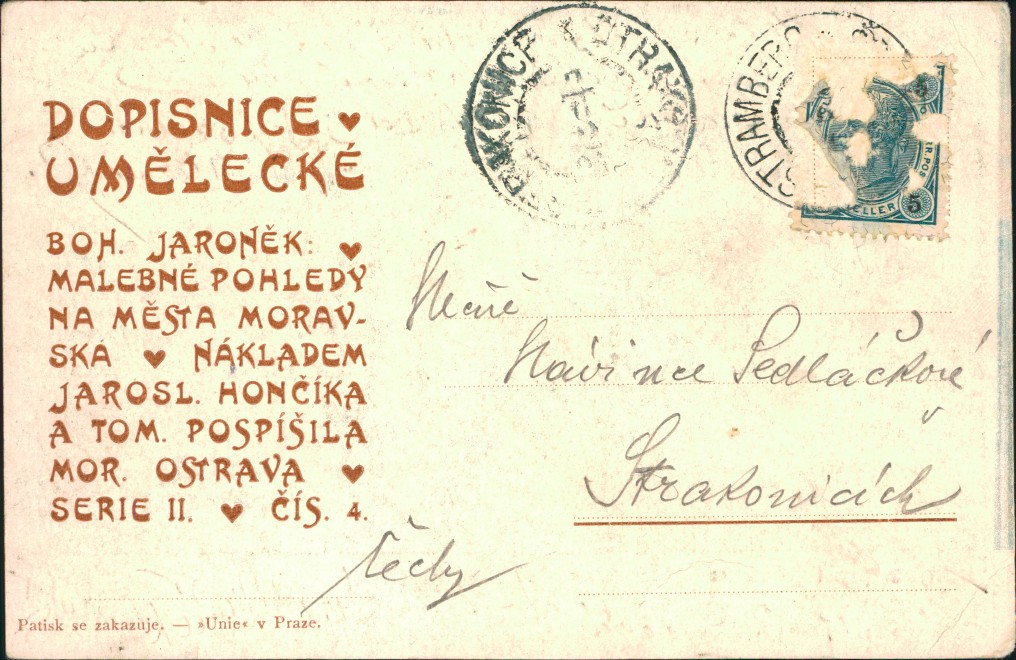 DOPISNICE
UMĚLECKÉ
BOH. JARONĚK:
MALEBNÉ POHLEDY
NA MĚSTA MORAV-
SKÁ NÁKLADEM
JAROSL. HONČÍKA
A TOM. POSPÍŠILA
MOR. OSTRAVA
SERIE II. ČÍS. 4.
Patisk se zakazuje. — »Unie« v Praze.
STRAKONICE
STRAMBERG
ELLER 5
Sedláčkové
v
Strakonicích
Čechy